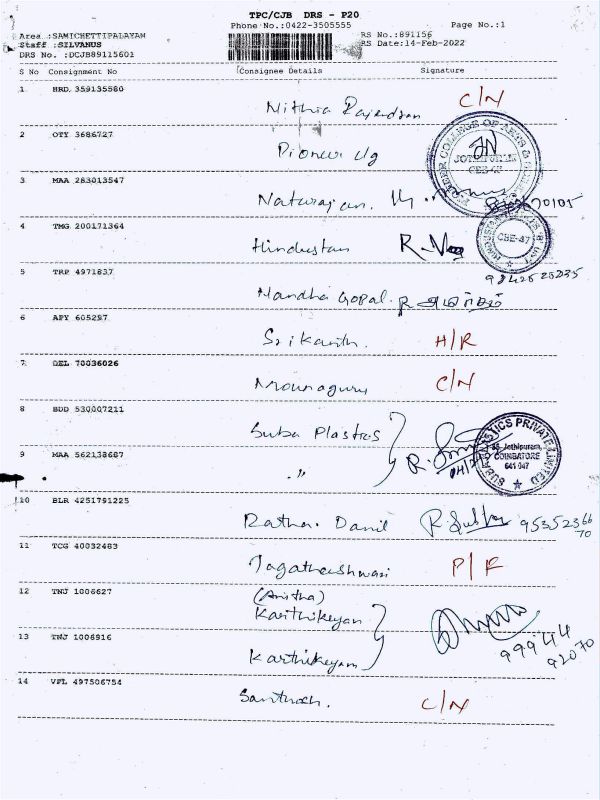 TPC/CJB DRS - P20
Phone No.:0422-3505555 Page No.:1
Area :SAMICHETTIPALAYAM RS No:891156
Staff :SILVANUS RS Date:14-Feb-2022
DRS No. :DCJB89115601
S No Consignment No Consignee Details Signature
1 HRD 359135580
Nithia Rajendran C/N
2 OTY 3686727
Pioneer clg
COLLEGE OF ARTS &
3 MAA 283013547
Natarajan.
4 TMG 200171364
Hindustan
CBE-47
98426 25235
5 TRP 4971837
Nandha Gopal.
6 APY 605297
Srikanth. H/R
7 DEL 70036026
Mounaguru C/N
8 BDD 530007211
Suba Plastics
SUBA PLASTICS PRIVATE LIMITED
Jothipuram,
COIMBATORE
641 047
9 MAA 562138687
"
10 BLR 4251791225
Rathna Danil 95352366
70
11 TCG 40032483
Jagatheeshwari P/F
12 TNJ 1006627
(Anitha)
Karthikeyan
13 TNJ 1006916
Karthikeyan
99944
92070
14 VPL 497506754
Santhosh. C/N